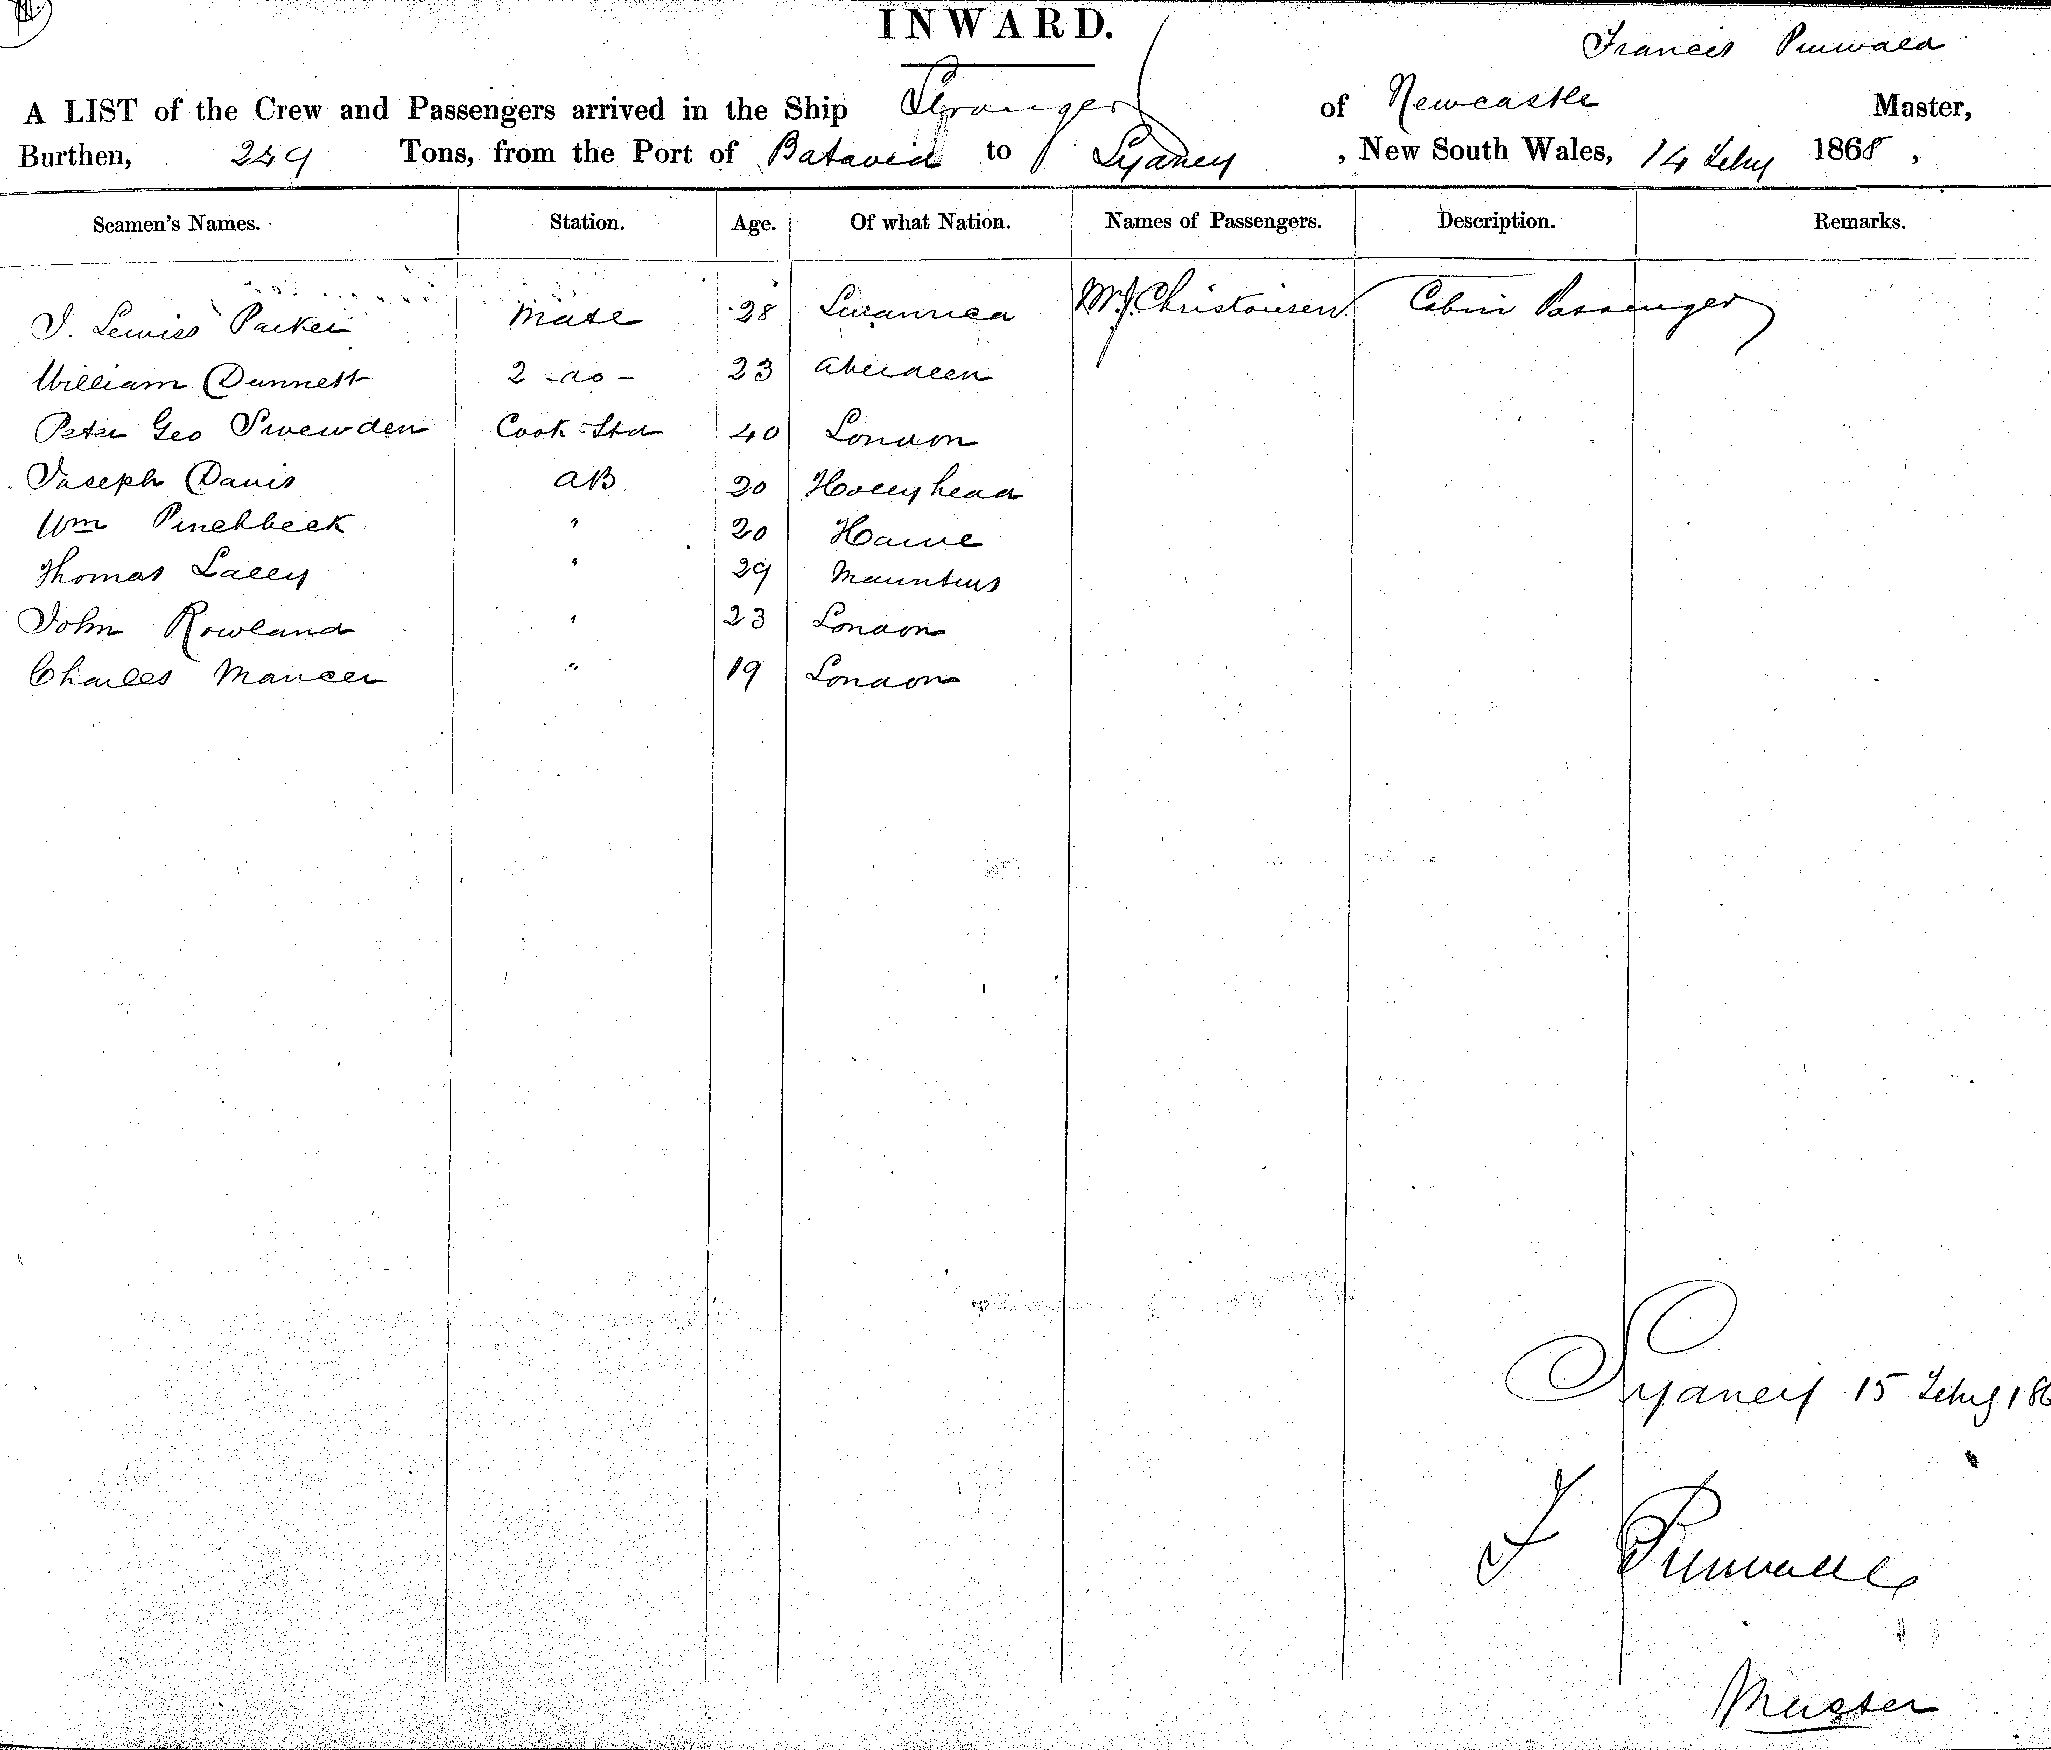 INWARD.
Francis
A LIST of the Crew and Passengers arrived in the Ship Stranger of Newcastle Master,
Burthen, 249 Tons, from the Port of Batavia to Sydney, New South Wales, 14 Feby 1868,
Seamen's Names. Station. Age. Of what Nation. Names of Passengers. Description. Remarks.
J. Lewiss Parker Mate 28 Mr J. Christonsen Cabin Passenger
William Dunnett 2 -do- 23 Aberdeen
Peter Geo Snewden Cook Std 40 London
Joseph Davis AB 20 Holleyhead
Wm Pinchbeck " 20 Havre
Thomas Lacey " 29 Mauritius
John Rowland " 23 London
Charles Mancer " 19 London
Sydney 15 Feby 186
F
Master